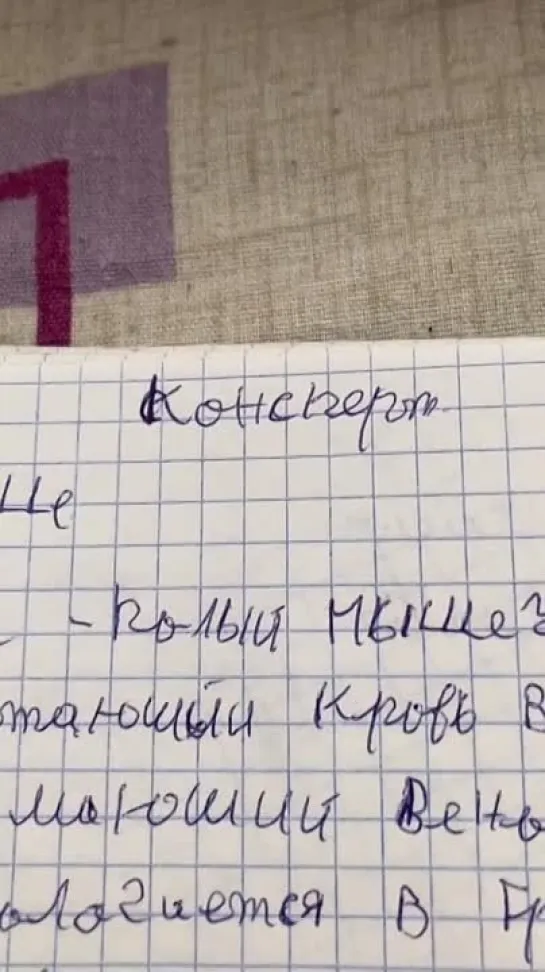 Консперт
це
- Полый мышеч
тающий кровь в
мающий вено
ологается в Гр